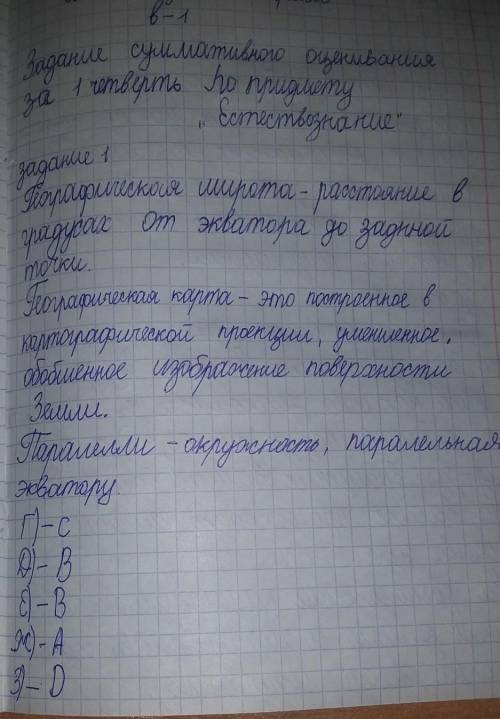 в-1
Задание суммативного оценивания
за 1 четверть по придмету
„Естествознание"
задание 1
Географическая широта - расстояние в
градусах от экватора до заднной
точки.
Географическая карта - это построенное в
картографической проекции, уменшенное,
обобшенное изображение поверхности
Земли.
Паралелли - окружность, паралельная
экватору.
Г) - С
Д) - В
Е) - В
Ж) - А
З) - D